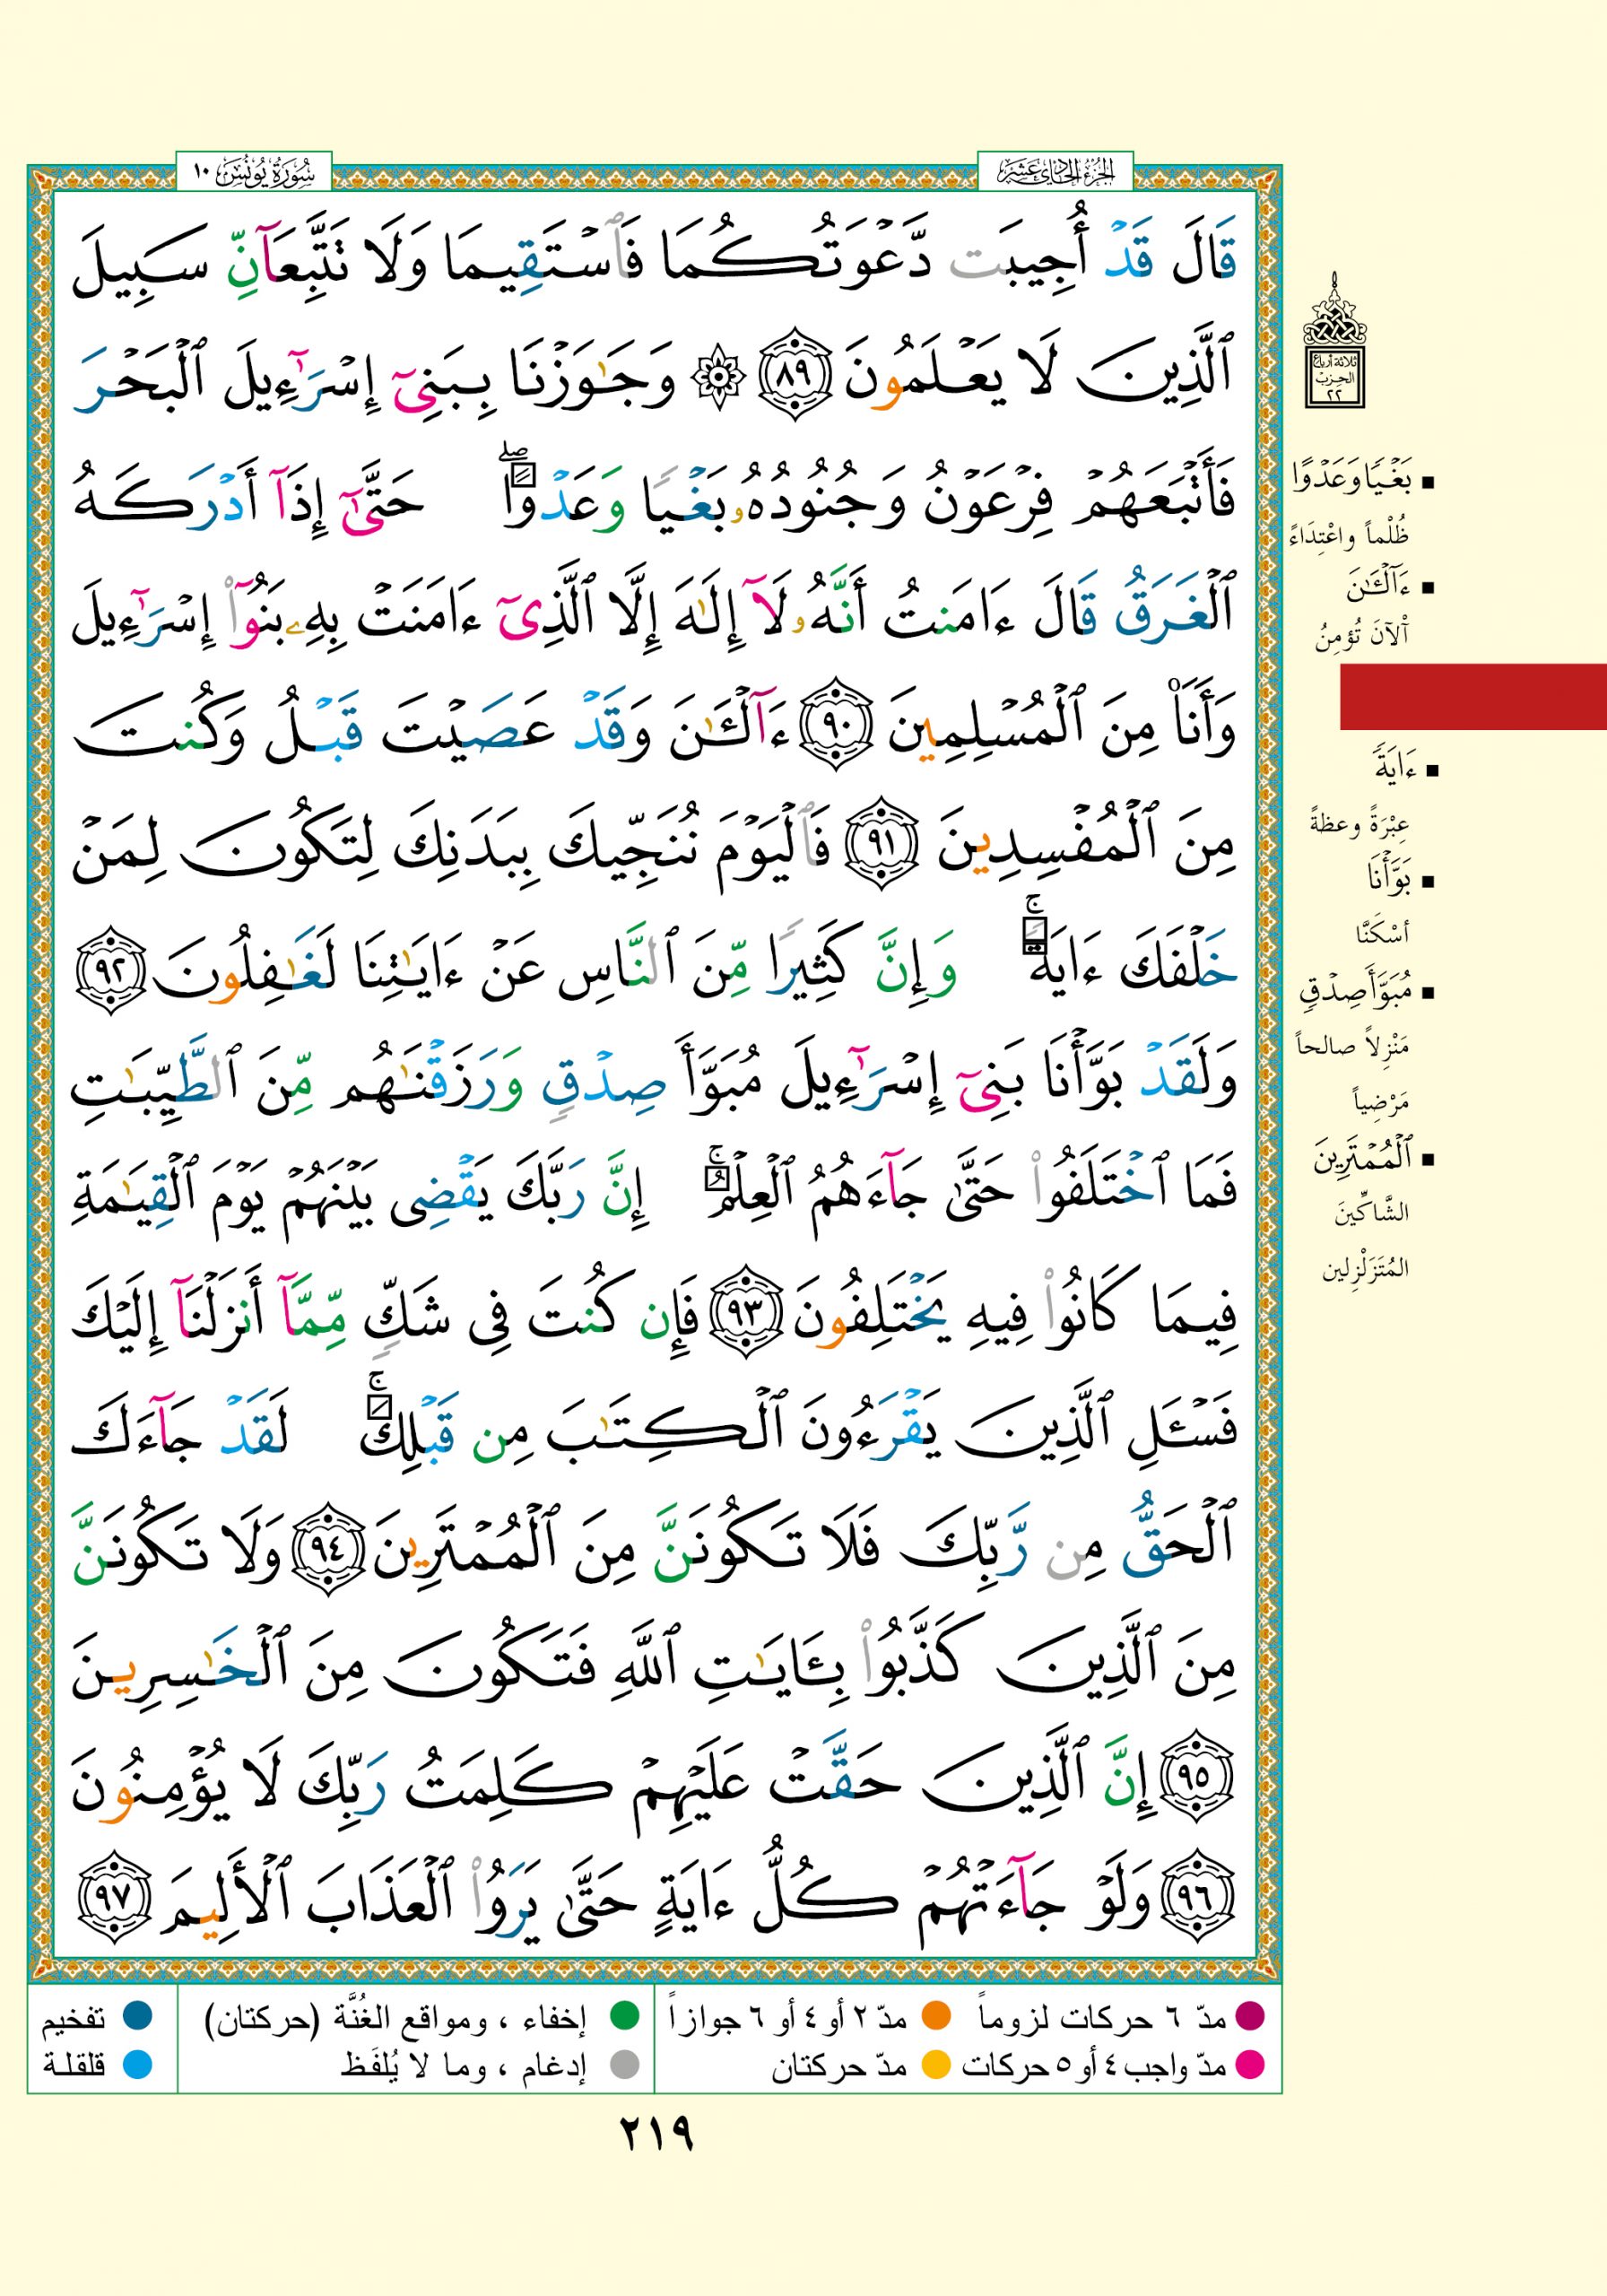 الجزء الحادي عشر
سورة يونس ١٠
قَالَ قَدْ أُجِيبَت دَّعْوَتُكُمَا فَٱسْتَقِيمَا وَلَا تَتَّبِعَآنِّ سَبِيلَ
ٱلَّذِينَ لَا يَعْلَمُونَ ٨٩ ۞ وَجَٰوَزْنَا بِبَنِىٓ إِسْرَٰٓءِيلَ ٱلْبَحْرَ
فَأَتْبَعَهُمْ فِرْعَوْنُ وَجُنُودُهُۥ بَغْيًا وَعَدْوًا ۖ حَتَّىٰٓ إِذَآ أَدْرَكَهُ
ٱلْغَرَقُ قَالَ ءَامَنتُ أَنَّهُۥ لَآ إِلَٰهَ إِلَّا ٱلَّذِىٓ ءَامَنَتْ بِهِۦ بَنُوٓا۟ إِسْرَٰٓءِيلَ
وَأَنَا۠ مِنَ ٱلْمُسْلِمِينَ ٩٠ ءَآلْـَٰٔنَ وَقَدْ عَصَيْتَ قَبْلُ وَكُنتَ
مِنَ ٱلْمُفْسِدِينَ ٩١ فَٱلْيَوْمَ نُنَجِّيكَ بِبَدَنِكَ لِتَكُونَ لِمَنْ
خَلْفَكَ ءَايَةً ۚ وَإِنَّ كَثِيرًا مِّنَ ٱلنَّاسِ عَنْ ءَايَٰتِنَا لَغَٰفِلُونَ ٩٢
وَلَقَدْ بَوَّأْنَا بَنِىٓ إِسْرَٰٓءِيلَ مُبَوَّأَ صِدْقٍ وَرَزَقْنَٰهُم مِّنَ ٱلطَّيِّبَٰتِ
فَمَا ٱخْتَلَفُوا۟ حَتَّىٰ جَآءَهُمُ ٱلْعِلْمُ ۚ إِنَّ رَبَّكَ يَقْضِى بَيْنَهُمْ يَوْمَ ٱلْقِيَٰمَةِ
فِيمَا كَانُوا۟ فِيهِ يَخْتَلِفُونَ ٩٣ فَإِن كُنتَ فِى شَكٍّ مِّمَّآ أَنزَلْنَآ إِلَيْكَ
فَسْـَٔلِ ٱلَّذِينَ يَقْرَءُونَ ٱلْكِتَٰبَ مِن قَبْلِكَ ۚ لَقَدْ جَآءَكَ
ٱلْحَقُّ مِن رَّبِّكَ فَلَا تَكُونَنَّ مِنَ ٱلْمُمْتَرِينَ ٩٤ وَلَا تَكُونَنَّ
مِنَ ٱلَّذِينَ كَذَّبُوا۟ بِـَٔايَٰتِ ٱللَّهِ فَتَكُونَ مِنَ ٱلْخَٰسِرِينَ
٩٥ إِنَّ ٱلَّذِينَ حَقَّتْ عَلَيْهِمْ كَلِمَتُ رَبِّكَ لَا يُؤْمِنُونَ
٩٦ وَلَوْ جَآءَتْهُمْ كُلُّ ءَايَةٍ حَتَّىٰ يَرَوُا۟ ٱلْعَذَابَ ٱلْأَلِيمَ ٩٧
ثلاثة أرباع
الحزب
٢٢
▪ بَغْيًا وَعَدْوًا
ظُلْماً واعْتِدَاءً
▪ ءَآلْـَٰٔنَ
آلْآنَ تُؤمِنُ
▪ ءَايَةً
عِبْرَةً وعظةً
▪ بَوَّأْنَا
أسْكَنَّا
▪ مُبَوَّأَ صِدْقٍ
مَنْزِلاً صالحاً
مَرْضِياً
▪ ٱلْمُمْتَرِينَ
الشَّاكِّينَ
المُتَزَلْزِلين
مدّ ٦ حركات لزوماً
مدّ ٢ أو ٤ أو ٦ جوازاً
مدّ واجب ٤ أو ٥ حركات
مدّ حركتان
إخفاء ، ومواقع الغُنَّة (حركتان)
إدغام ، وما لا يُلفَظ
تفخيم
قلقلة
٢١٩